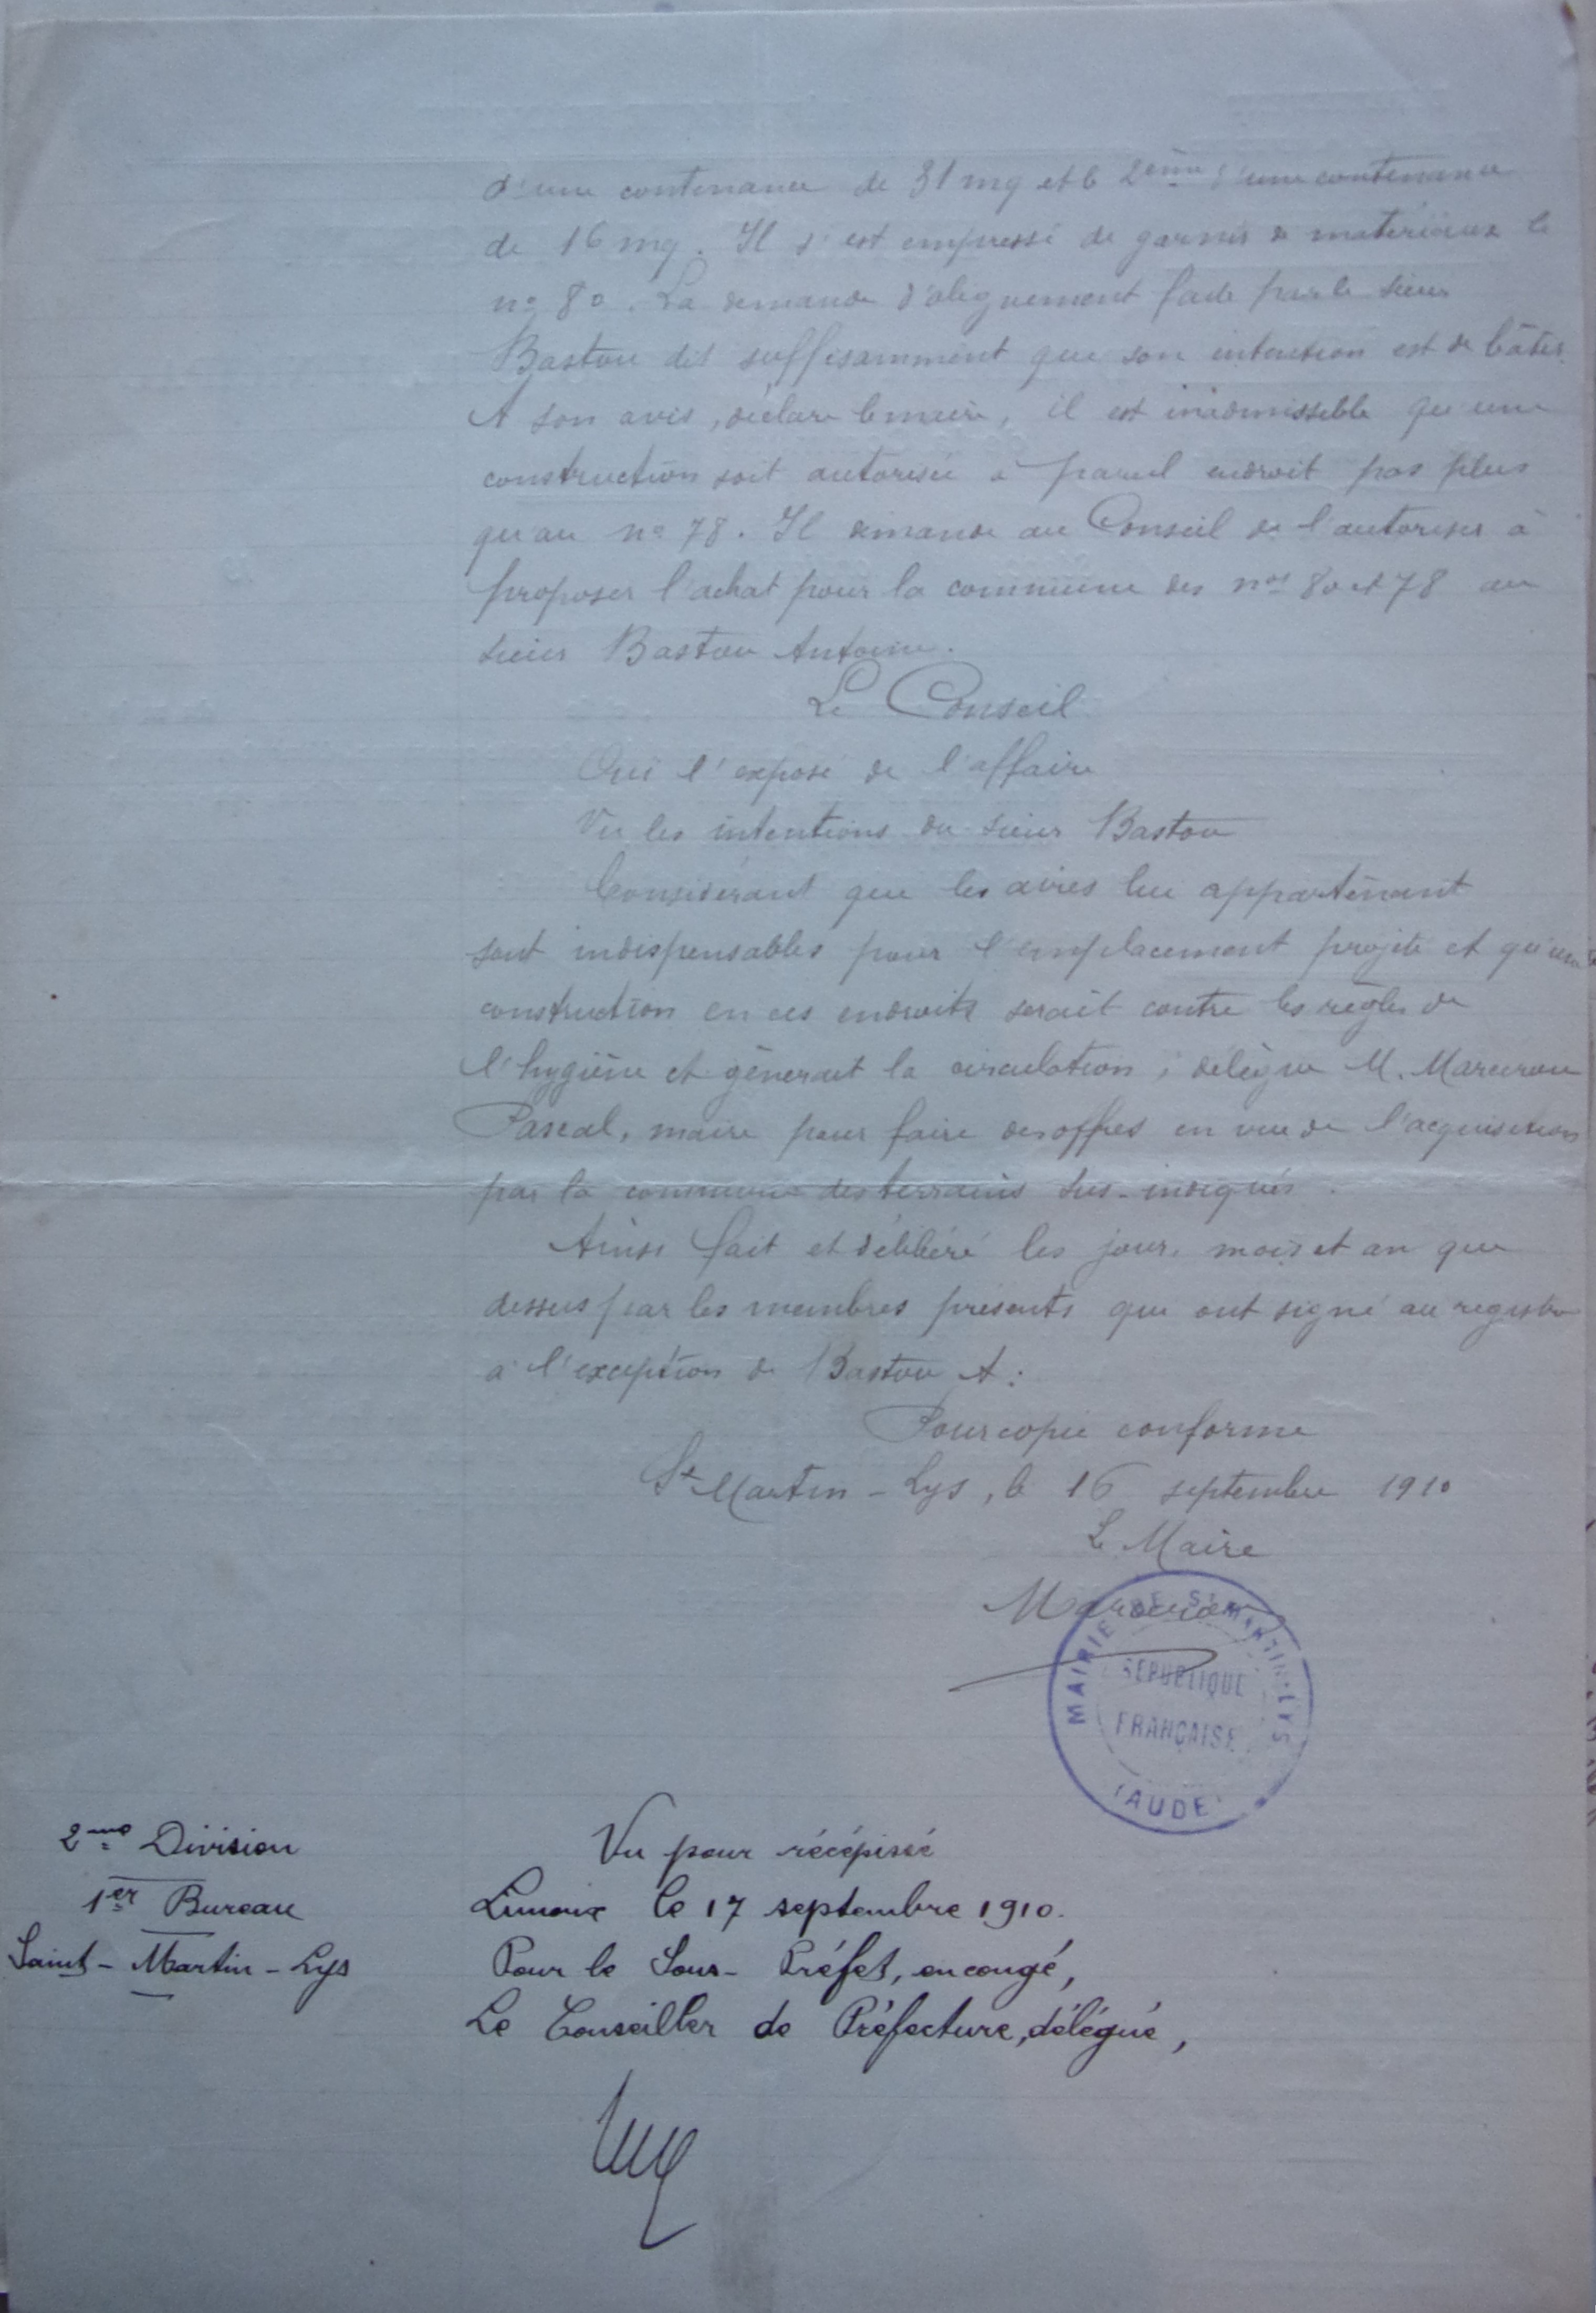 d'une contenance de 31 mq et le 2ème d'une contenance
de 16 mq. Il s'est empressé de garnir de matériaux le
no 80. La demande d'alignement faite par le sieur
Bastou dit suffisamment que son intention est de bâtir.
A son avis, déclare le maire, il est inadmissible qu'une
construction soit autorisée à pareil endroit pas plus
qu'au no 78. Il demande au Conseil de l'autoriser à
proposer l'achat pour la commune des nos 80 et 78 au
sieur Bastou Antoine.
Le Conseil
Oui l'exposé de l'affaire
Vu les intentions du sieur Bastou
Considérant que les aires lui appartenant
sont indispensables pour l'emplacement projeté et qu'une
construction en ces endroits serait contre les règles de
l'hygiène et gênerait la circulation, délègue M. Marcerou
Pascal, maire pour faire des offres en vue de l'acquisition
par la commune des terrains sus-indiqués.
Ainsi fait et délibéré les jour, mois et an que
dessus par les membres présents qui ont signé au registre
à l'exception de Bastou A:
Pour copie conforme
St Martin-Lys, le 16 septembre 1910
Le Maire
Marcerou
MAIRIE DE ST MARTIN-LYS
REPUBLIQUE
FRANÇAISE
(AUDE)
2me Division
1er Bureau
Saint-Martin-Lys
Vu pour récépissé
Limoux le 17 septembre 1910.
Pour le Sous-Préfet, en congé,
Le Conseiller de Préfecture, délégué,